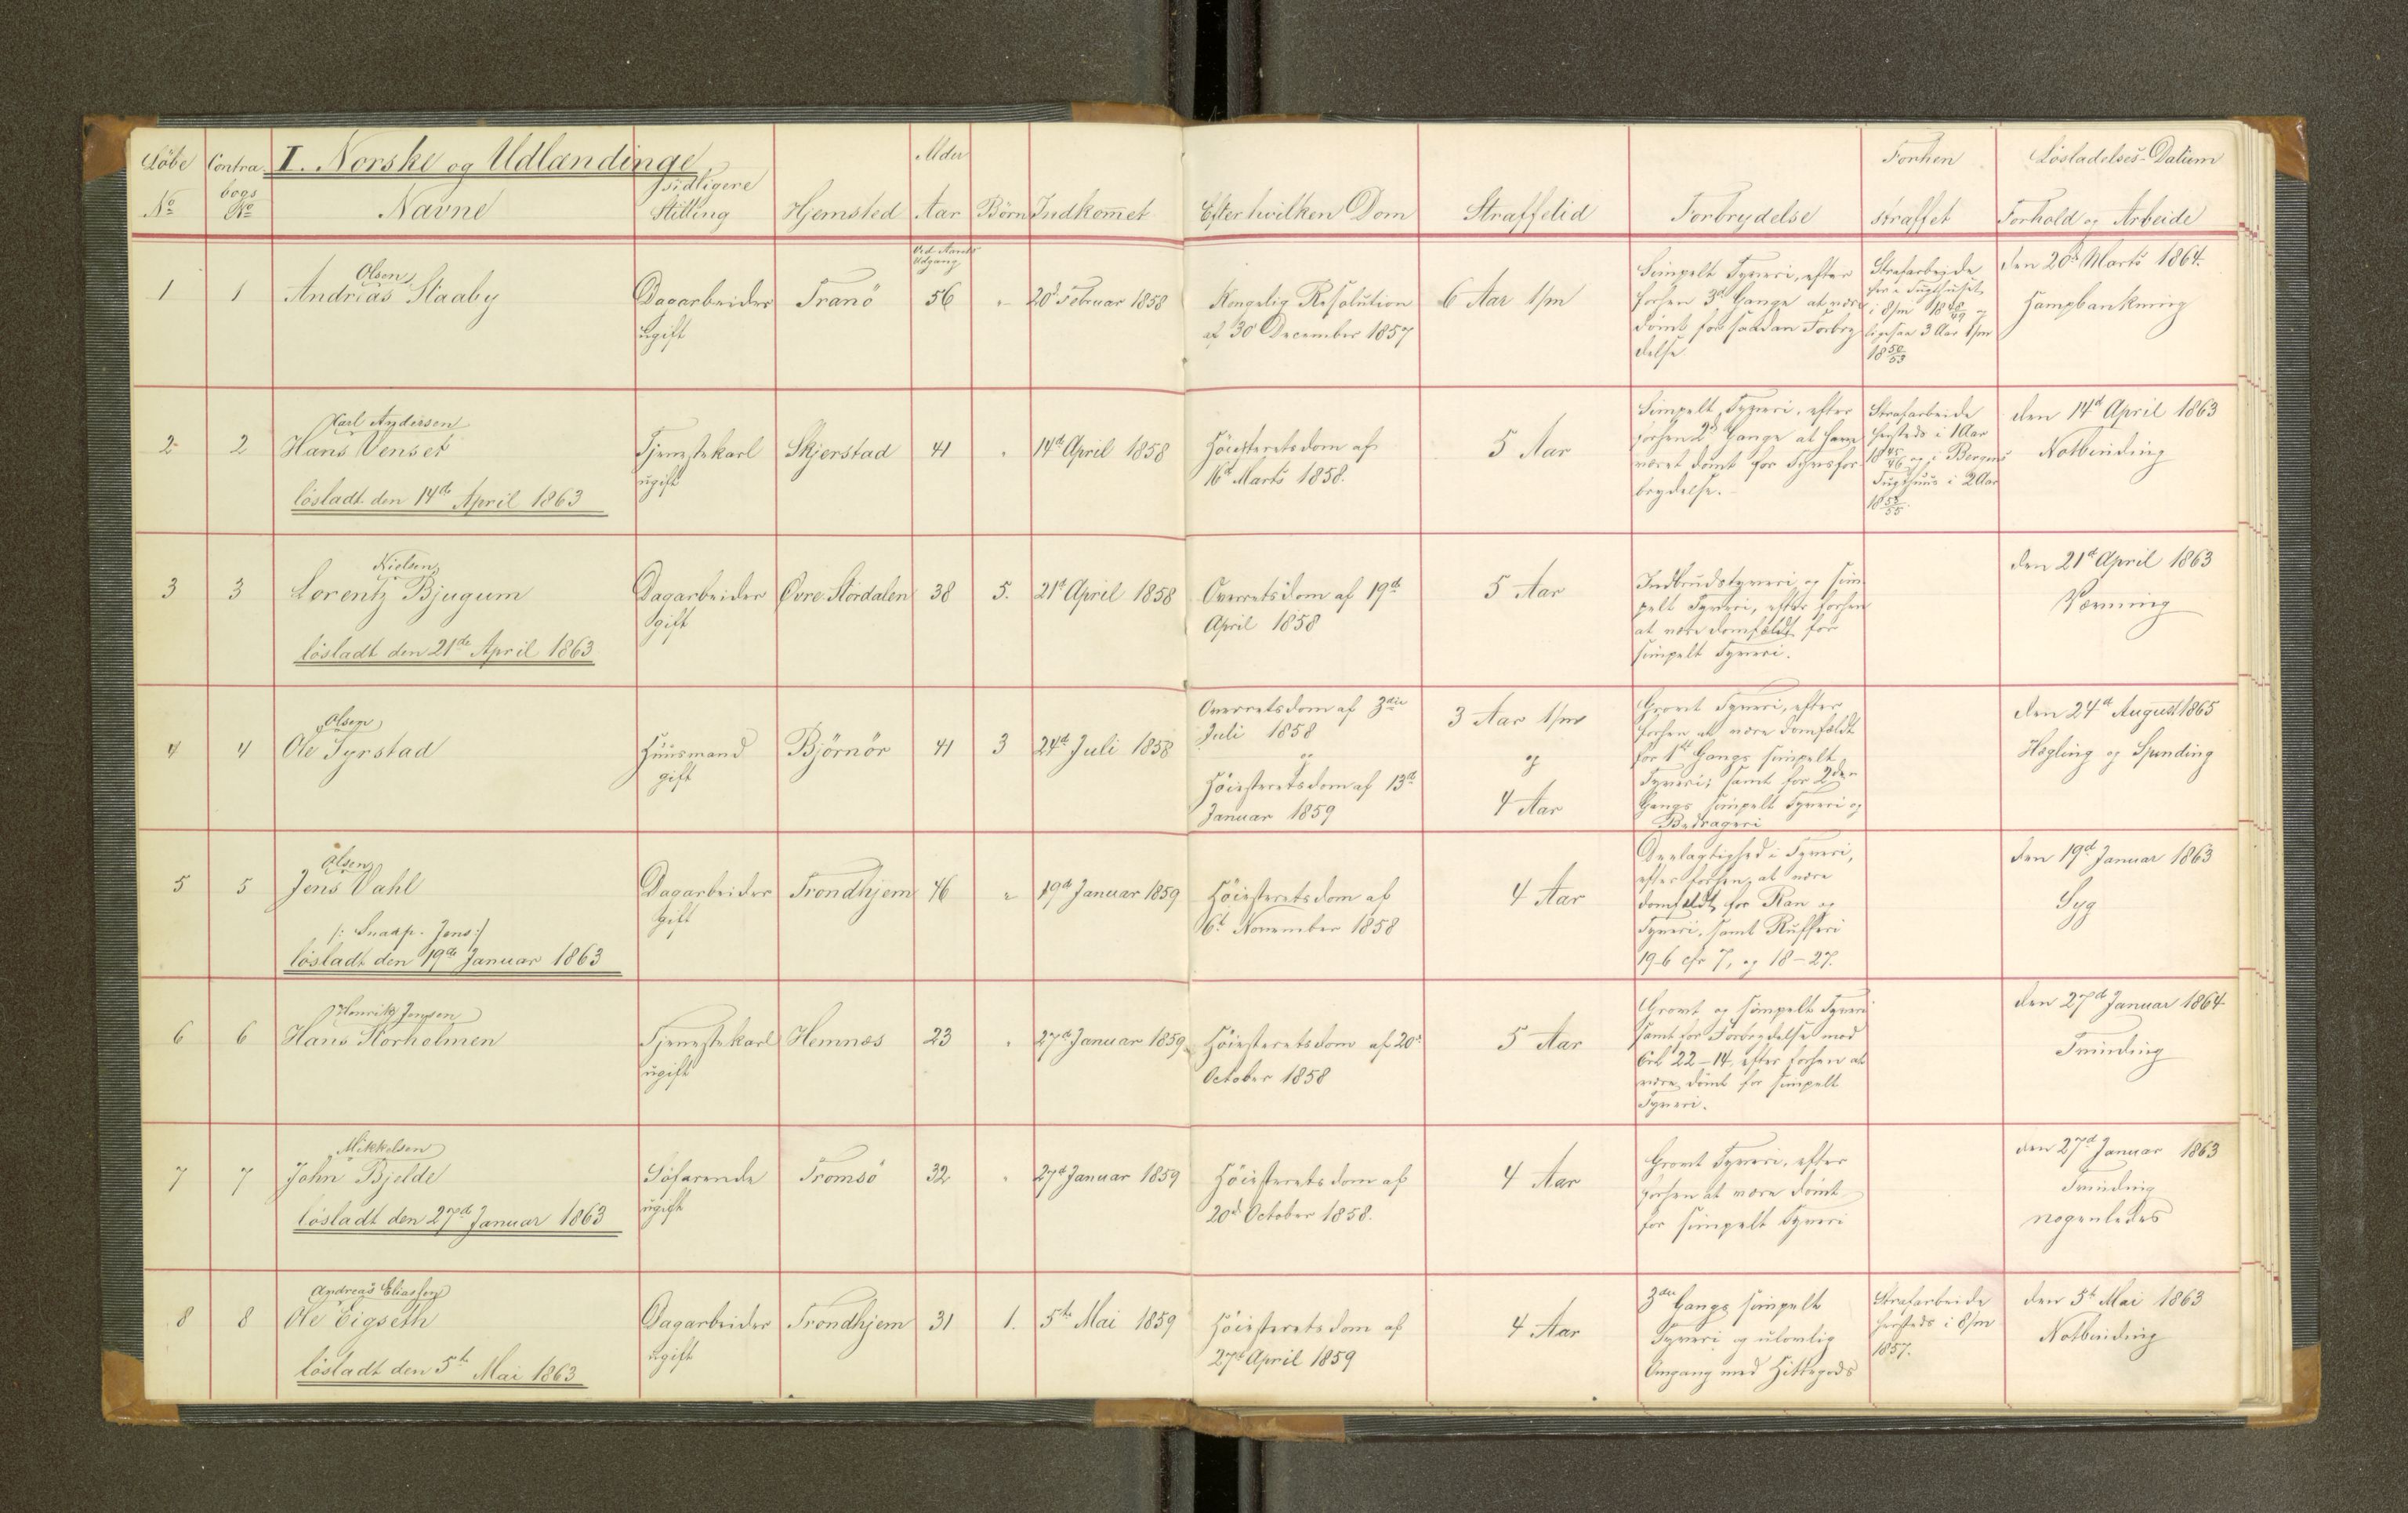 Løbe Contra I. Norske og Udlændinge Alder Forhen Løsladelses-Datum
bogs Tidligere
No No Navne Stilling Hjemsted Aar Børn Indkommet Efter hvilken Dom Straffetid Forbrydelse straffet Forhold og Arbeide
Ved Aarets
Udgang
Olsen
1 1 Andreas Staaby Dagarbeider Tranö 56 " 20d Februar 1858 Kongelig Resolution 6 Aar 1/m
ugift af 30 December 1857
Simpelt Tyveri, efter
forhen 3d Gange at være
dömt for saadan Forbry
delse
Strafarbeide
i 8/m 1848/49 og
ligesaa 3 Aar 1/m
1850/53
den 20d Marts 1864.
Hampbankning
Karl Andersen
2 2 Hans Venset Tjenestekarl Skjerstad 41 " 14d April 1858 Höiesteretsdom af 5 Aar
ugift 16d Marts 1858.
lösladt den 14de April 1863
Simpelt Tyveri, efter
forhen 2d Gange at have
været dömt for Tyvsfor
brydelse.
Strafarbeide
hersteds i 1 Aar
1845/46 og i Bergens
Tugthuus i 2 Aar
1853/55.
den 14d April 1863
Notbinding
Nielsen
3 3 Lorentz Bjugum Dagarbeider Övre Stördalen 38 5. 21d April 1858 Overretsdom af 19de 5 Aar
gift April 1858
lösladt den 21de April 1863
Indbrudstyveri og sim
pelt Tyveri, efter forhen
at være domfældt for
simpelt Tyveri.
den 21d April 1863
Vævning
Olsen
4 4 Ole Tyrstad Huusmand Björnör 41 3 24d Juli 1858
gift
Overretsdom af 3die
Juli 1858
og
Höiesteretsdom af 13d
Januar 1859
3 Aar 1/m
og
4 Aar
Grovt Tyveri, efter
forhen at være domfældt
for 1ste Gangs simpelt
Tyveri; samt for 2den
Gangs simpelt Tyveri og
Bedrageri
den 24d August 1865
Hegling og Spinding
Olsen
5 5 Jens Vahl Dagarbeider Trondhjem 46 " 19d Januar 1859 Höiesteretsdom af 4 Aar
gift 6t November 1858
/: Snaap. Jens :/
lösladt den 19de Januar 1863
Deelagtighed i Tyveri,
efter forhen, at være
domfældt for Ran og
Tyveri, samt Rufferi
19-6 cfr 7, og 18-27.
den 19d Januar 1863
Syg
Henrik Jensen
6 6 Hans Storholmen Tjenestekarl Hemnæs 23 " 27d Januar 1859 Höiesteretsdom af 20d 5 Aar
ugift October 1858
Grovt og simpelt Tyveri
samt for Forbrydelse mod
Crl 22-14, efter forhen at
være dömt for simpelt
Tyveri.
den 27d Januar 1864
Tvinding
Mikkelsen
7 7 John Bjelde Söfarende Tromsö 32 " 27d Januar 1859 Höiesteretsdom af 4 Aar
ugift 20d October 1858.
lösladt den 27d Januar 1863
Grovt Tyveri, efter
forhen at være dömt
for simpelt Tyveri
den 27d Januar 1863
Tvinding
nogenledes
Andreas Eliassen
8 8 Ole Eigseth Dagarbeider Trondhjem 31 1. 5te Mai 1859 Höiesteretsdom af 4 Aar
ugift 27d April 1859
lösladt den 5te Mai 1863
3die Gangs simpelt
Tyveri og ulovlig
Omgang med Hittegods
Strafarbeide
hersteds i 8/m
1857.
den 5t Mai 1863
Notbinding